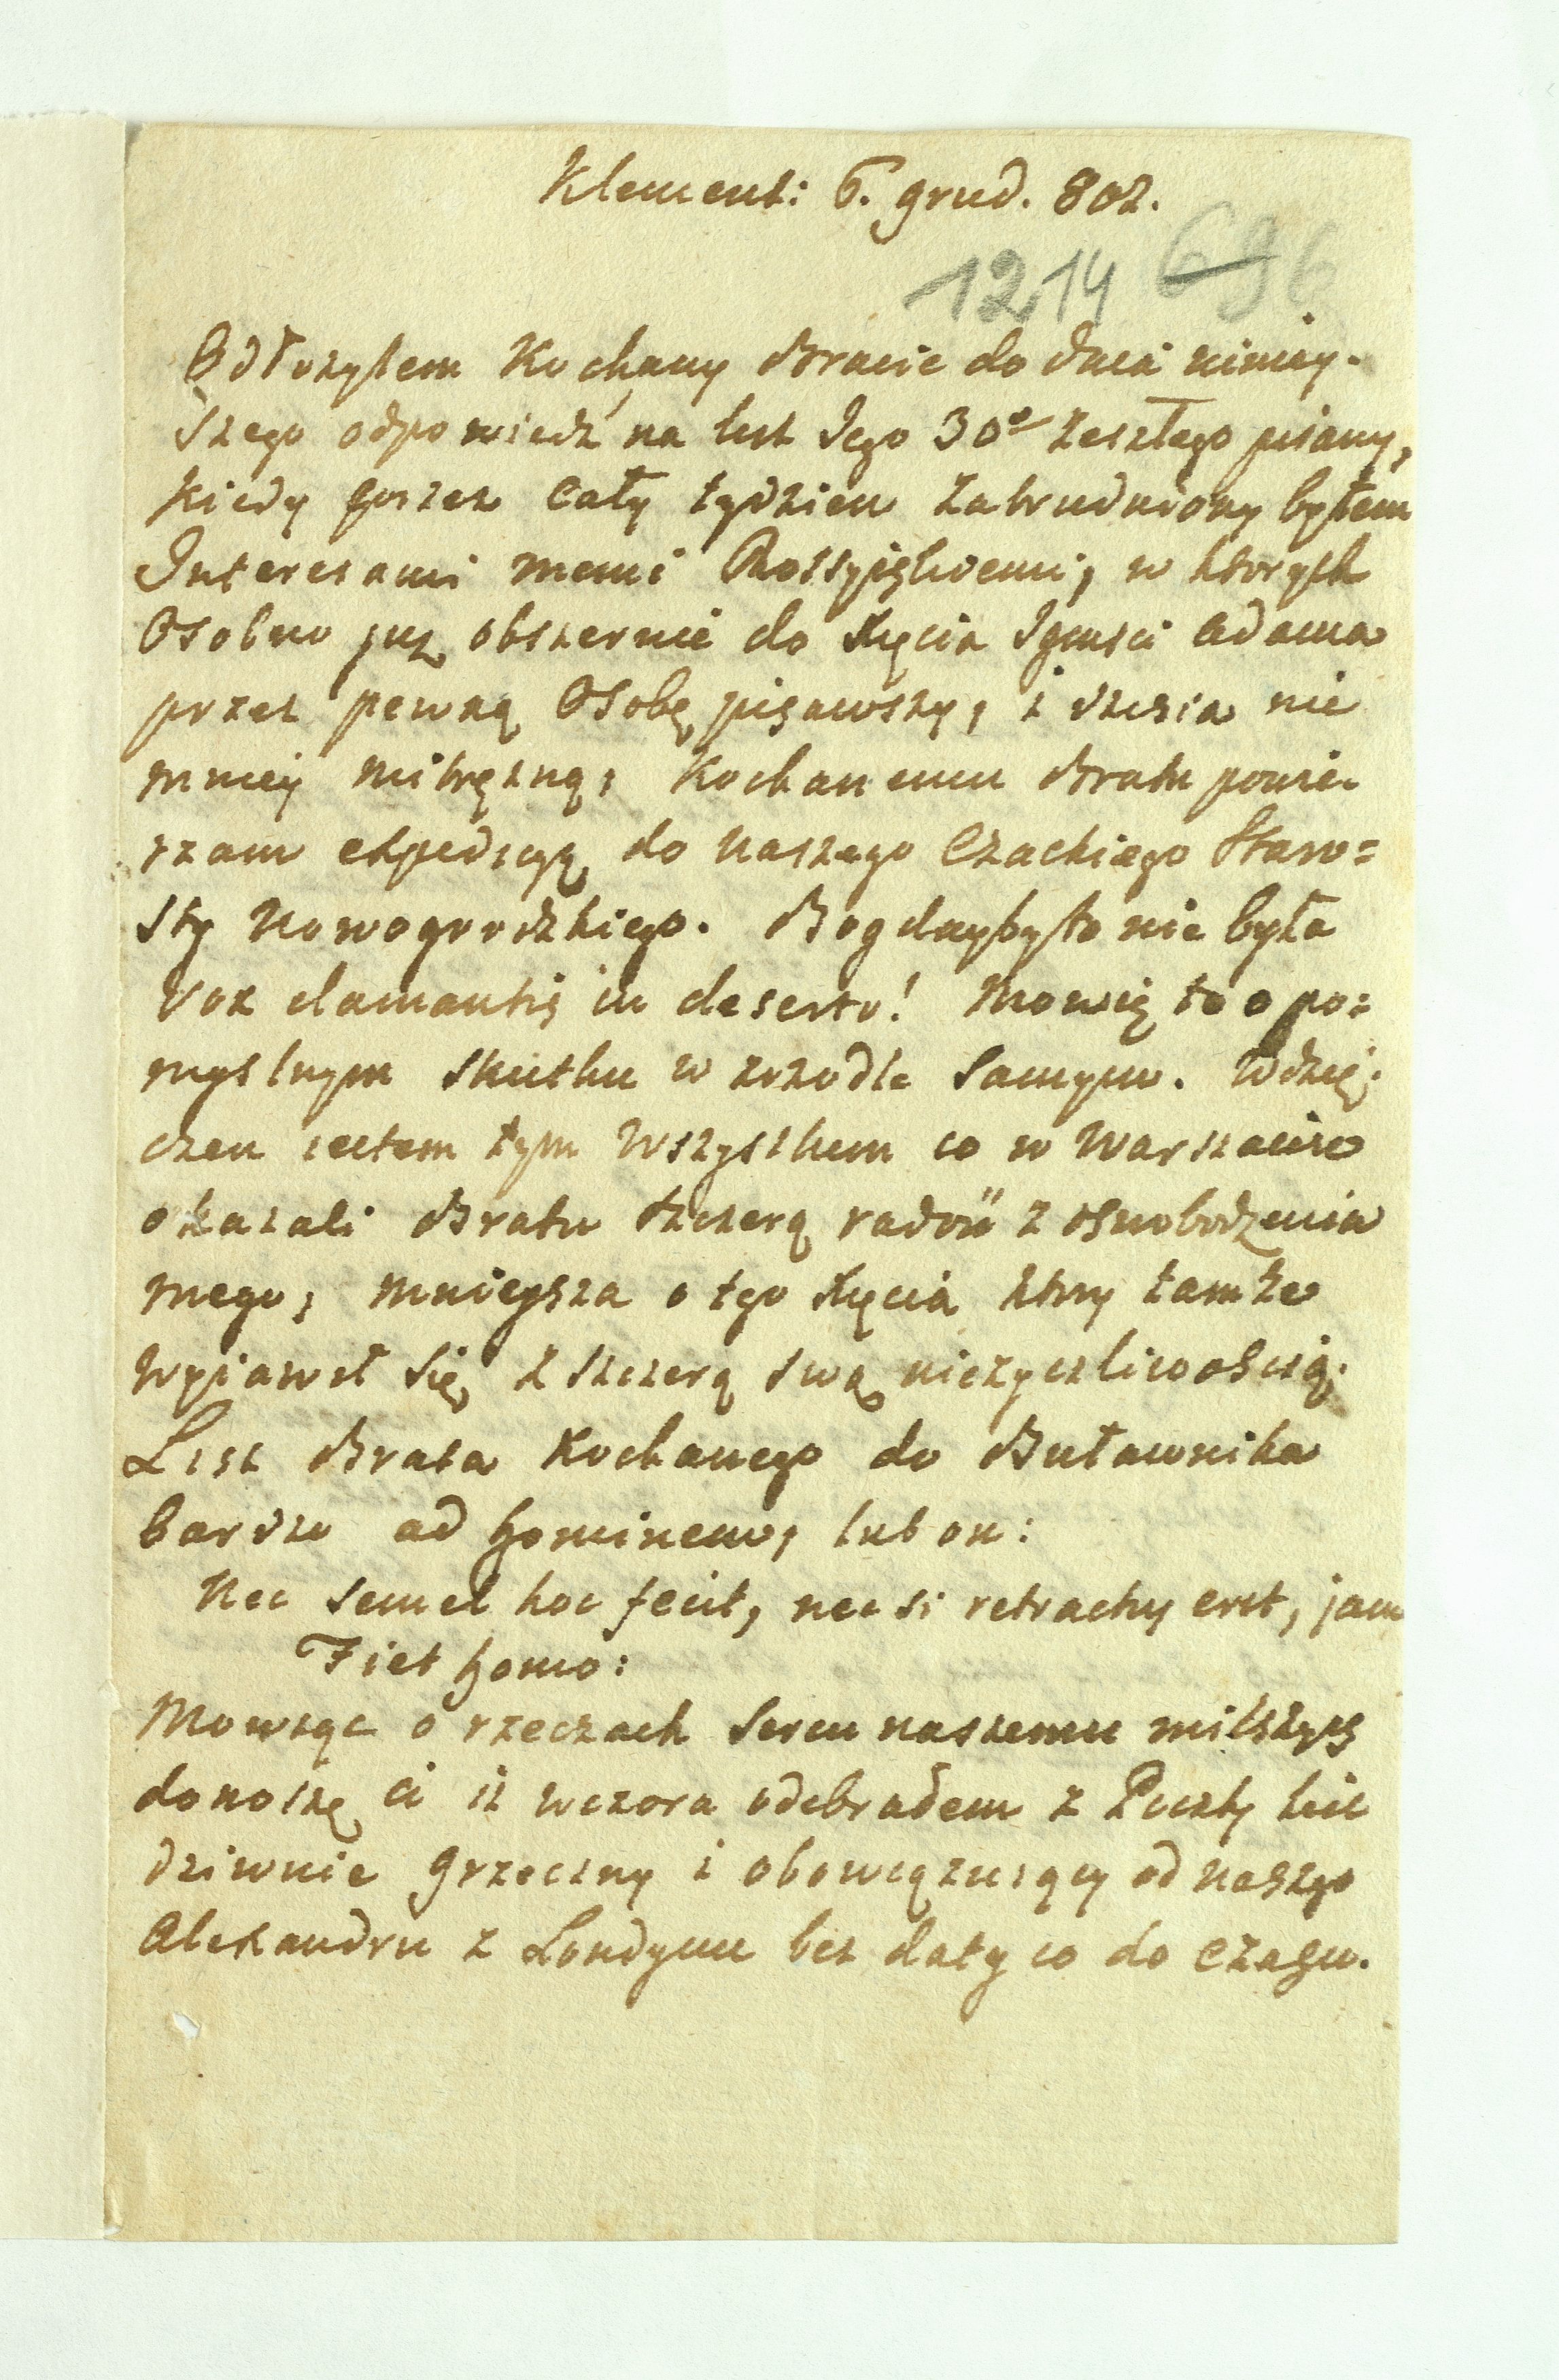 Klement: 6. grud. 802.
1214 696
Odłozyłem Kochany Bracie do dnia niniey-
szego odpowiedź na list Jego 30° zeszłego pisany,
kiedy przez cały tydzien zatrudniony byłem
Interesami memi Rossyiskiemi, w ktorych
Osobno juz obszernie do Xięcia Jgmsci Adama
przez pewną Osobę pisawszy, i dzisia nie
mniey mitręzną, Kochanemu Bratu powie-
rzam expedycyą do naszego Czackiego Staro=
sty Nowogrodzkiego. Bogdayby to nie była
Vox clamantis in deserto! Mowię to o po=
myslnym skutku w zrzodle samym. Wdzię-
czen iestem tym wszystkim co w Warszawie
okazali Bratu szczerą radość z oswobodzenia
mego, mnieysza o tego Xięcia ktory tamze
wyiawił się z szczerą swą nieżyczliwoscią.
List Brata Kochanego do Buławnika
bardzo ad hominem, lub on:
Nec semel hoc fecit, nec si retractus erit, jam
Fiet homo:
Mowiąc o rzeczach sercu naszemu milszych
donoszę ci iż wczora odebrałem z Poczty list
dziwnie grzeczny i obowiązuiący od naszego
Alexandra z Londynu bez daty co do czasu.